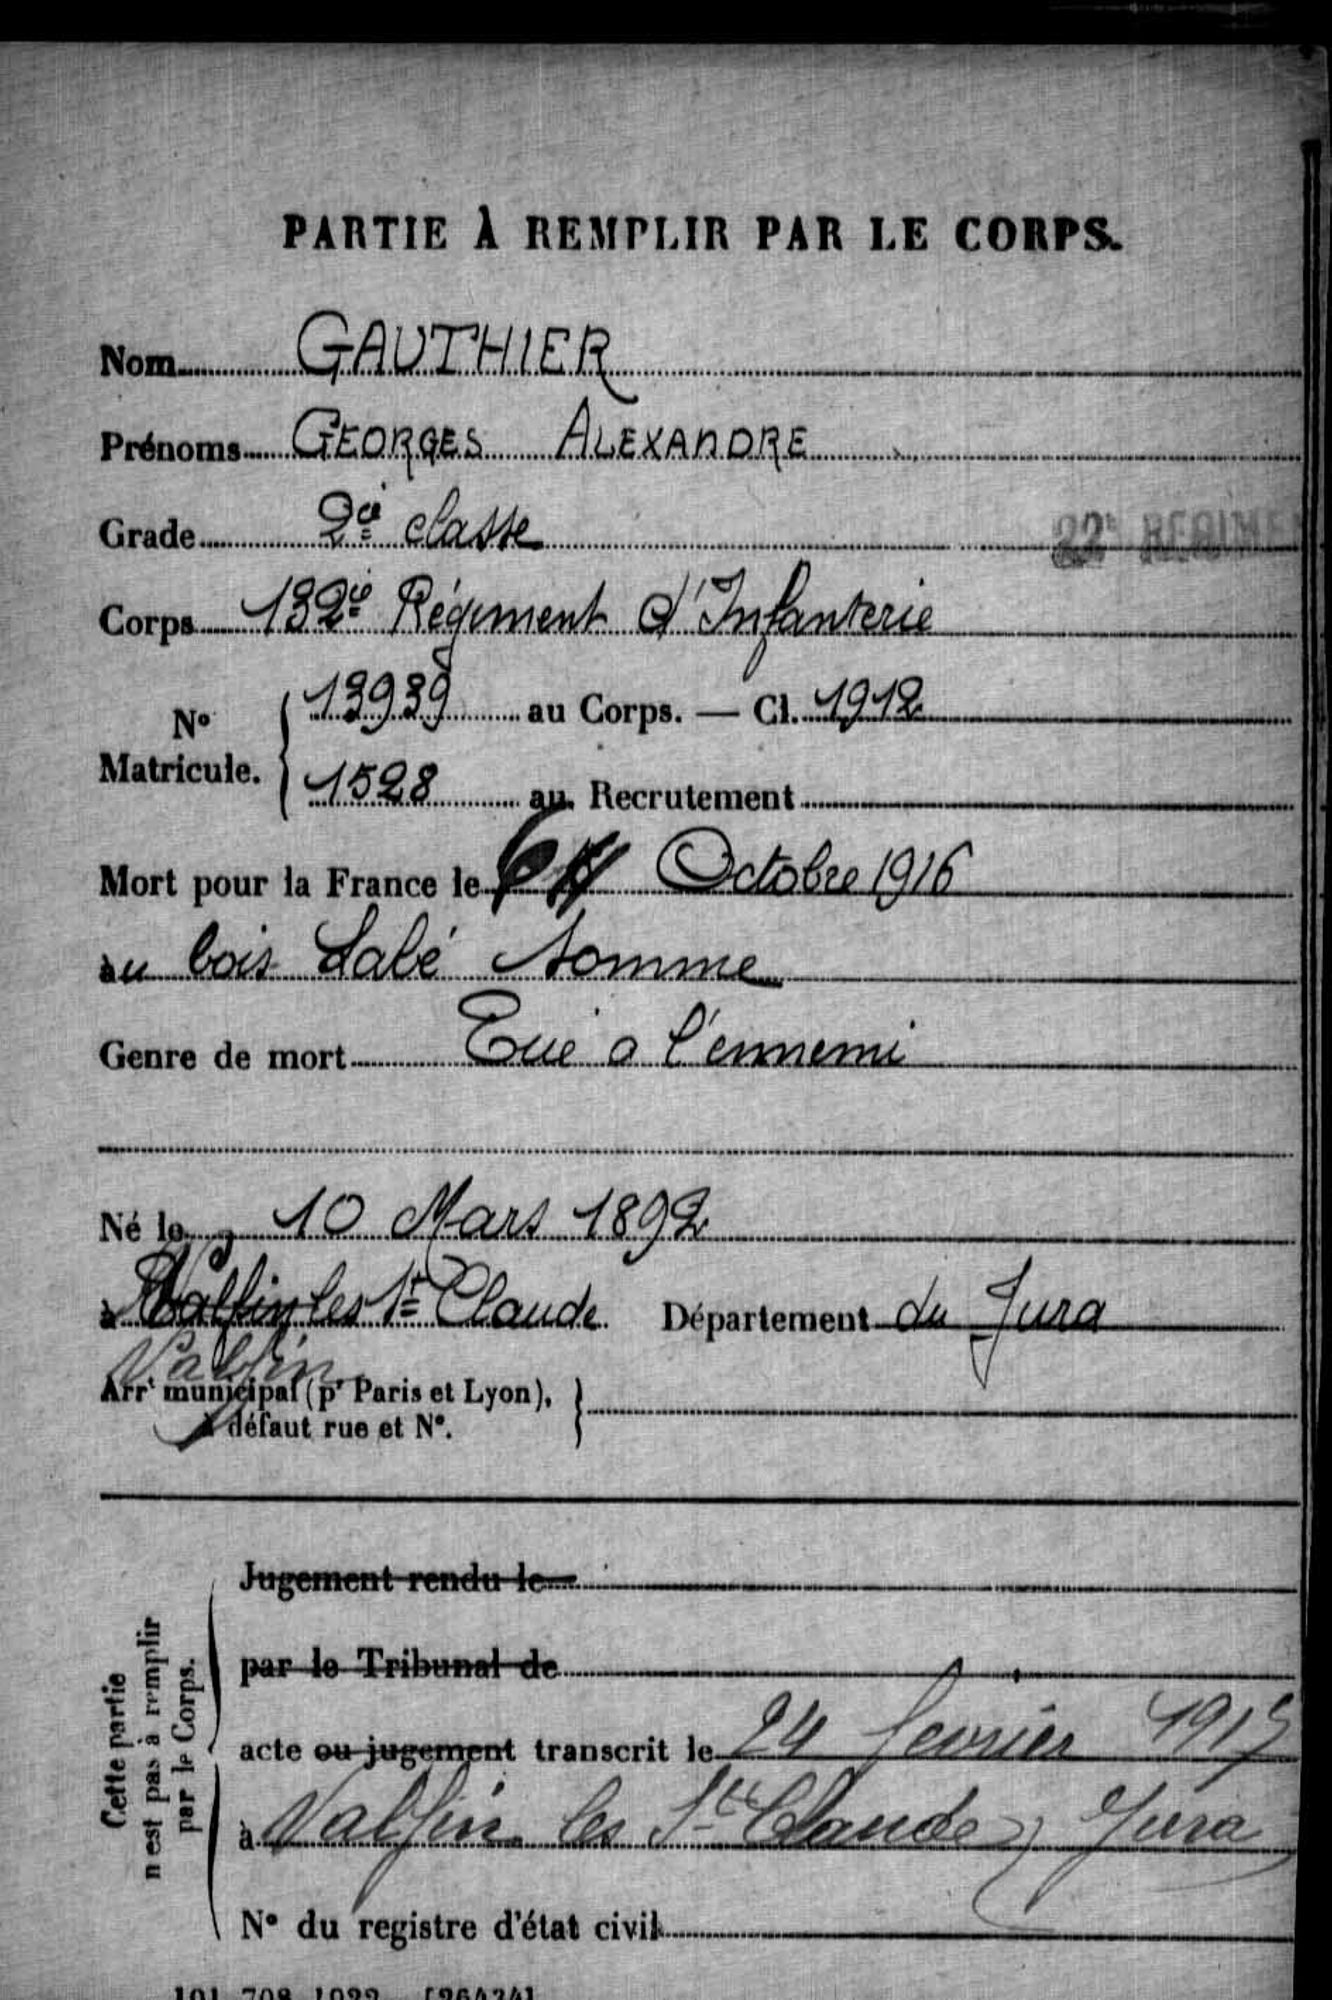 PARTIE À REMPLIR PAR LE CORPS.
Nom GAUTHIER
Prénoms GEORGES ALEXANDRE
Grade 2e classe
22e REGIMEN
Corps 132e Régiment d'Infanterie
N° Matricule. 13939 au Corps. — Cl. 1912
1528 au Recrutement
Mort pour la France le 6 Octobre 1916
au bois Labé Somme
Genre de mort Tué a l'ennemi
Né le 10 Mars 1892
à Valfin les St Claude Département du Jura
Valfin
Arrt municipal (pr Paris et Lyon),
à défaut rue et N°.
Cette partie
n'est pas à remplir
par le Corps.
Jugement rendu le
par le Tribunal de
acte ou jugement transcrit le 24 fevrier 1917
à Valfin les St Claude, Jura
N° du registre d'état civil
101.708.1922. [26434]